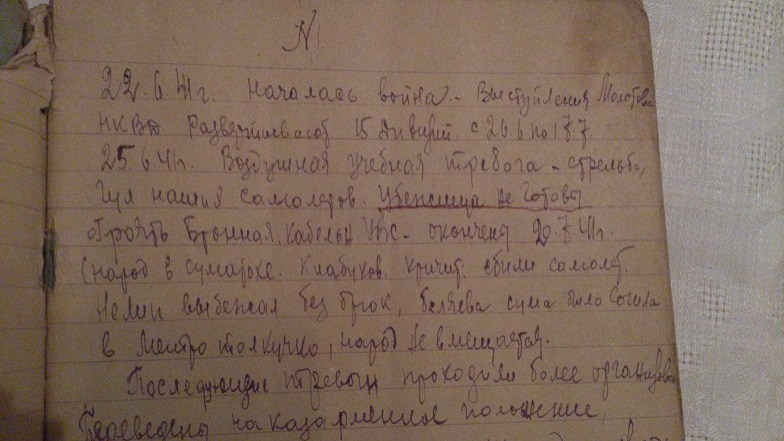 N 1
22.6.41г. Началась война. - Выступления Молотова
НКВД Развертывает 15 дивизий. с 26 6 по 17.7
25.6.41г. Воздушная учебная тревога - стрельба,
гул наших самолетов. Убежища не готовы
строять Бронная, кабельн. - окончены 20.7.41г.
(народ в суматохе. Клабуков. кричит: сбили самолет.
Нелин выбежал без брюк, Беляева сума была
в Метро толкучка, народ не вмещается.
Последующие тревоги проходили более организова
Переведены на казарменное положение,